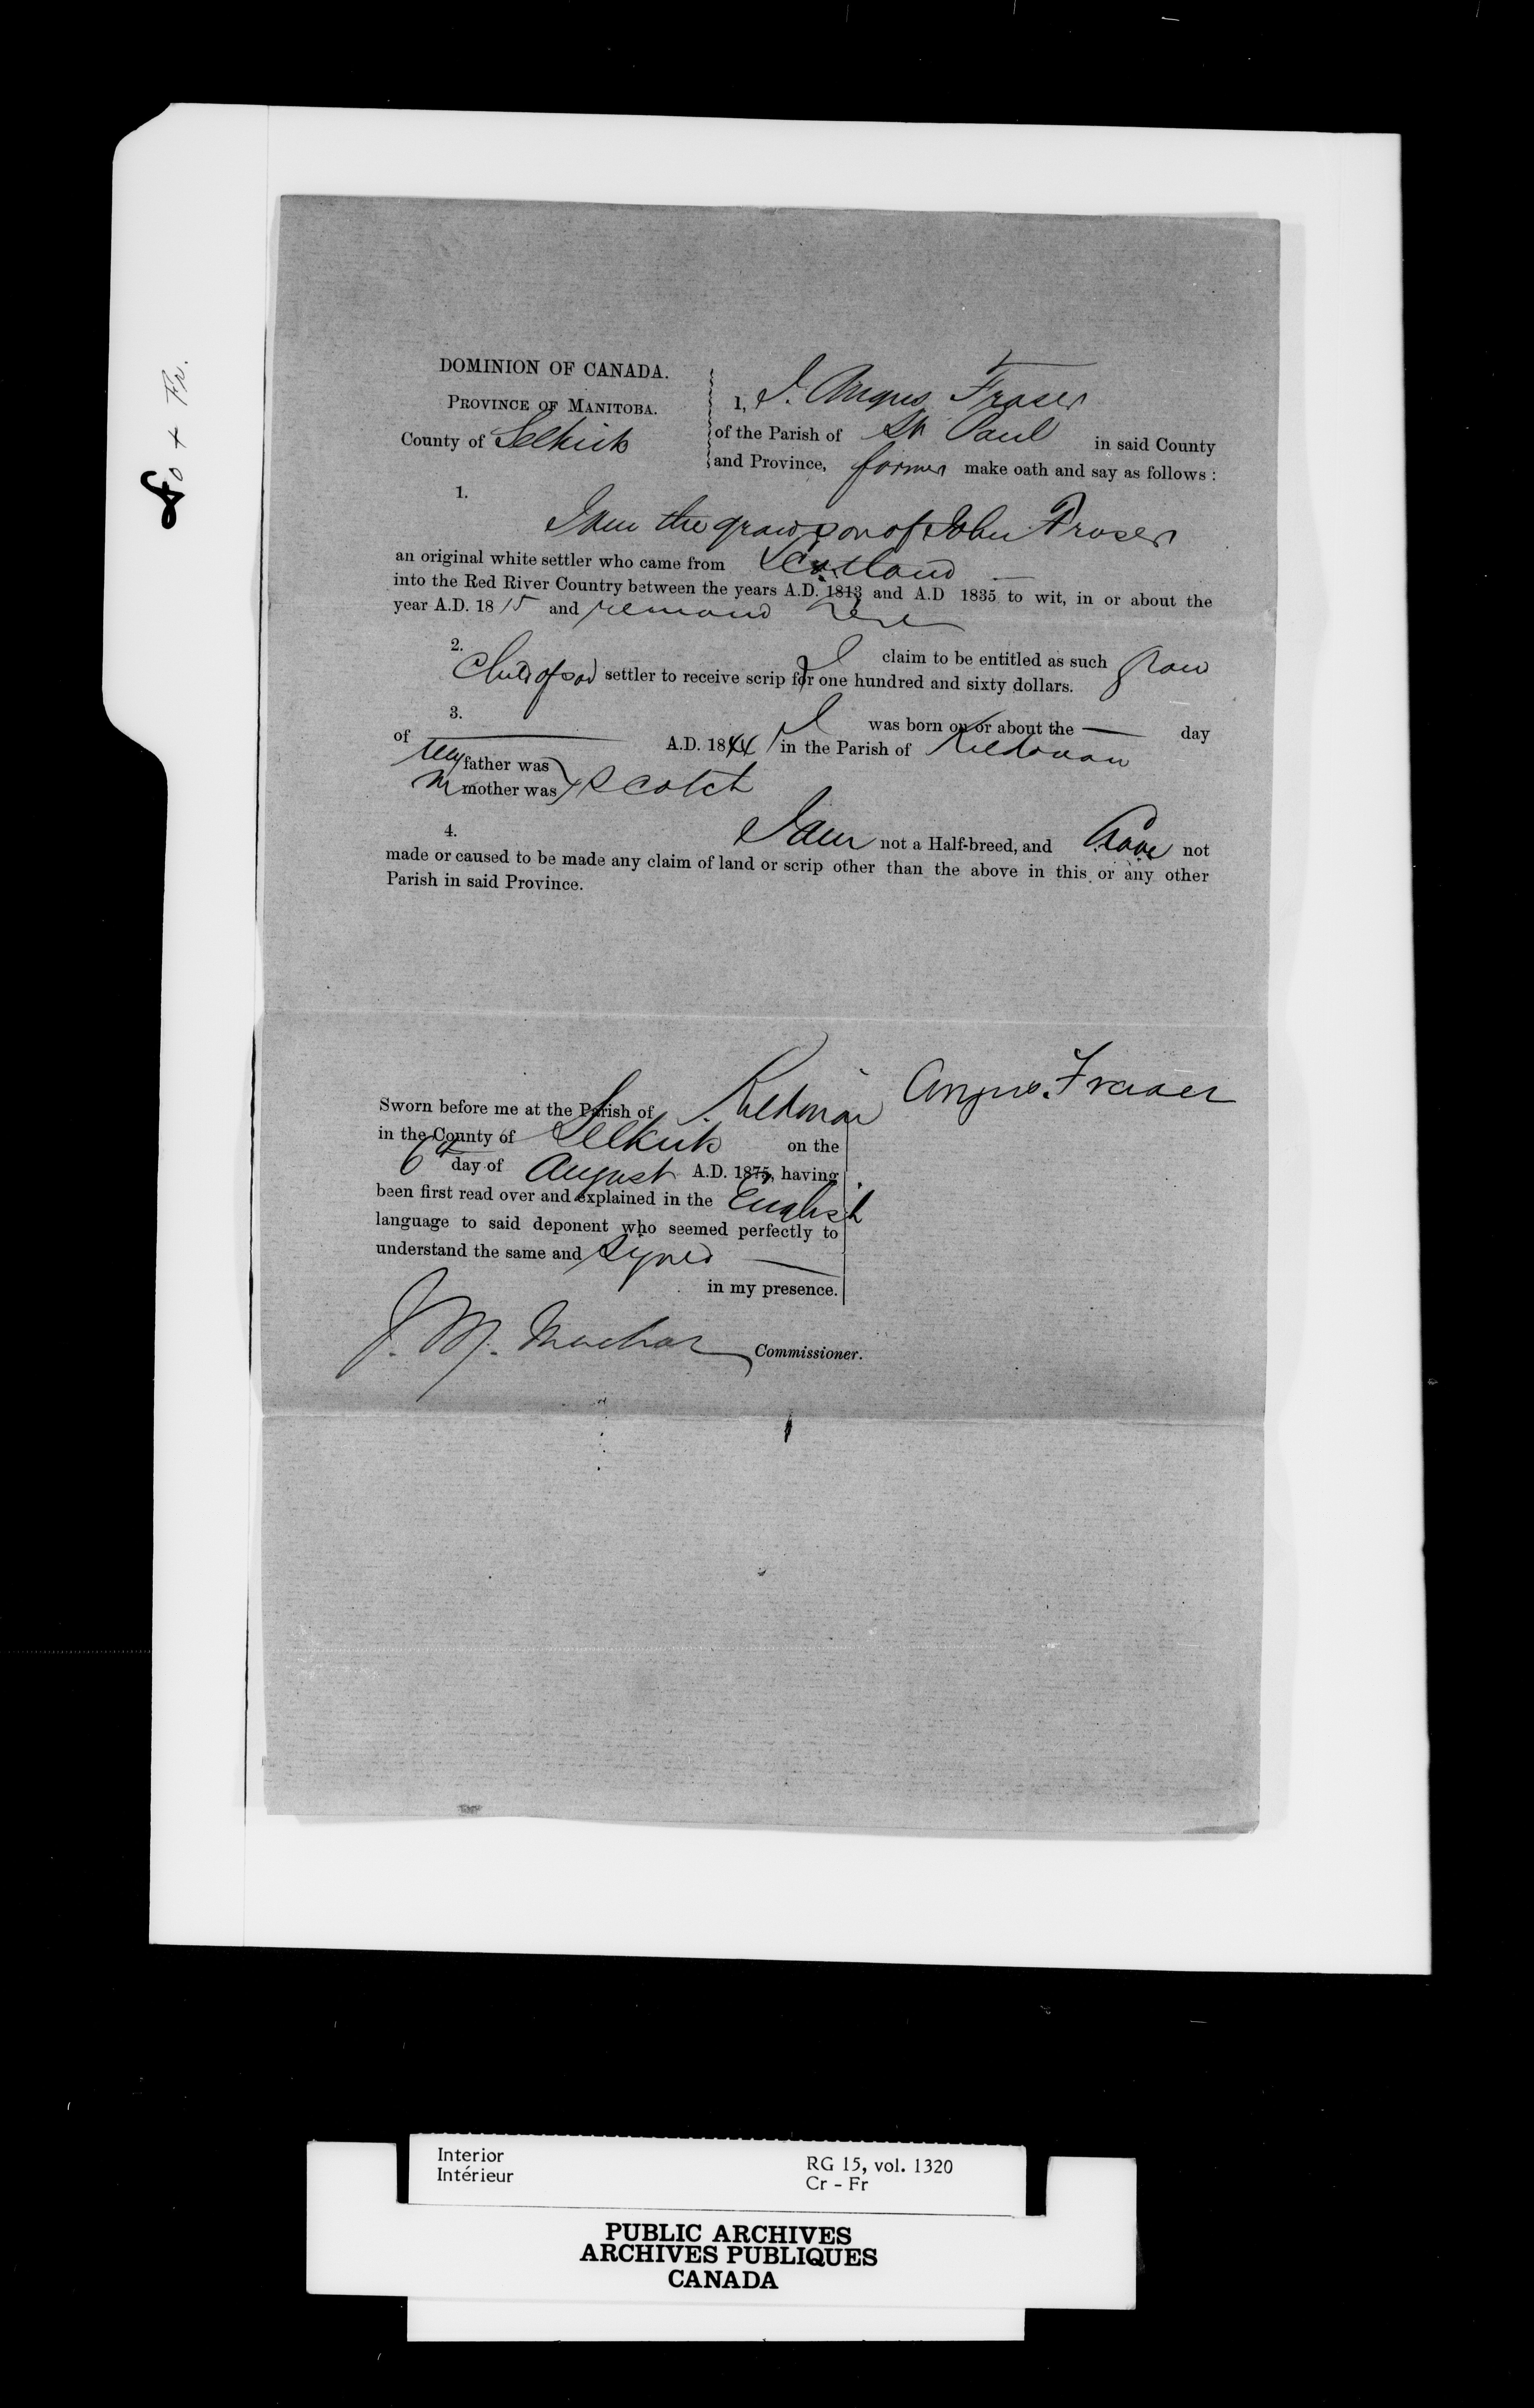 DOMINION OF CANADA.
PROVINCE OF MANITOBA.
County of Selkirk
I, I. Angus Fraser
of the Parish of St Paul in said County
and Province, farmer make oath and say as follows :
1.
I am the grandson of John Fraser
an original white settler who came from Scotland
into the Red River Country between the years A.D. 1813 and A.D 1835 to wit, in or about the
year A.D. 1815 and remained here
2.
I claim to be entitled as such gran
child of said settler to receive scrip for one hundred and sixty dollars.
3.
I was born on or about the — day
of — A.D. 1844 in the Parish of Kildonan
My father was
M mother was Scotch
4.
I am not a Half-breed, and have not
made or caused to be made any claim of land or scrip other than the above in this or any other
Parish in said Province.
Angus. Fraser
Sworn before me at the Parish of Kildonan
in the County of Selkirk on the
6th day of August A.D. 1875, having
been first read over and explained in the English
language to said deponent who seemed perfectly to
understand the same and signed
in my presence.
J. M. Machar Commissioner.
Interior
Intérieur
RG 15, vol. 1320
Cr - Fr
PUBLIC ARCHIVES
ARCHIVES PUBLIQUES
CANADA